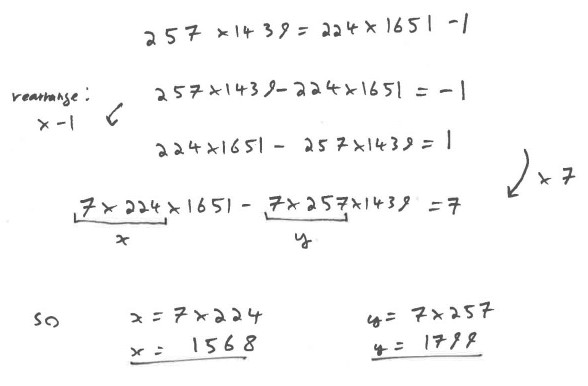 257 × 1439 = 224 × 1651 - 1
rearrange: 257 × 1439 - 224 × 1651 = -1
× -1
224 × 1651 - 257 × 1439 = 1
× 7
7 × 224 × 1651 - 7 × 257 × 1439 = 7
x y
so x = 7 × 224 y = 7 × 257
x = 1568 y = 1799